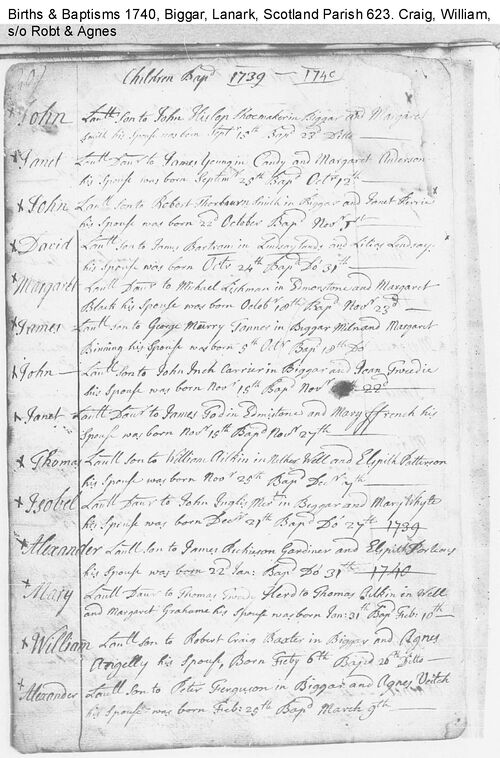 Births & Baptisms 1740, Biggar, Lanark, Scotland Parish 623. Craig, William,
s/o Robt & Agnes
Children Bapd 1739 — 1740
John Laull son to John Hislop Shoemaker in Biggar and Margaret
Smith his Spouse was born Sept 18th Bapd 23d Ditto
Janet Laull Daur to James Young in Candy and Margaret Anderson
his Spouse was born Septemr 25th Bapd Octr 12th
John Laull son to Robert Thorburn Smith in Biggar and Janet
his Spouse was born 22d October Bapd Novr 1st
David Laull son to James Bertram in Lindsaylands and Lilias Lindsay
his Spouse was born Octr 24th Bapd Do 31th
Margaret Laull Daur to Michael Lishman in Edmonstone and Margaret
Black his Spouse was born Octobr 18th Bapd Novr 23d
James Laull son to George Murry Tanner in Biggar Miln and Margaret
Binning his Spouse was born 5th Octr Bapd 18th Do
John Laull son to John Inch Carrier in Biggar and Jean Tweedie
his Spouse was born Novr 15th Bapd Novr 22d
Janet Laull Daur to James Tod in Edmistone and Mary ffrench his
Spouse was born Novr 15th Bapd Novr 27th
Thomas Laull son to William Aitkin in Nether Well and Elspith Patterson
his Spouse was born Novr 25th Bapd Decr 7th
Isobel Laull Daur to John Inglis Mert in Biggar and Mary Whyte
his Spouse was born Decr 21th Bapd Do 27th 1739
Alexander Laull son to James Gardiner and Elspith Porteous
his Spouse was born 22 Jan: Bapd Do 31th 1740
Mary Laull Daur to Thomas Herd to Thomas Aitkin in Well
and Margaret Grahame his Spouse was born Jan: 31th Bap Feb: 10th
William Laull son to Robert Craig Baxter in Biggar and Agnes
Angelly his Spouse, Born Feby 6th Baped 20th Ditto
Alexander Laull son to Peter Ferguson in Biggar and Agnes Veitch
his Spouse was born Feb: 25th Bapd March 9th